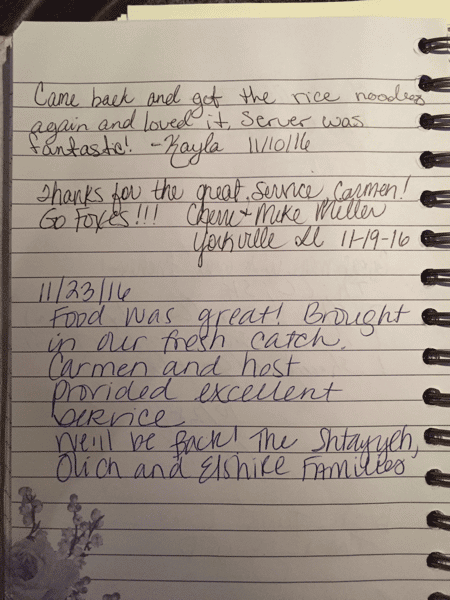 Came back and got the rice noodles
again and loved it. Server was
fantastic! -Kayla 11/10/16
Thanks for the great service Carmen!
GO FOXES!!! Cherie & Mike Miller
Yorkville Il 11-19-16
11/23/16
Food was great! Brought
in our fresh catch.
Carmen and host
provided excellent
service
We'll be back! The Shtayyeh,
Olich and Elshire Families